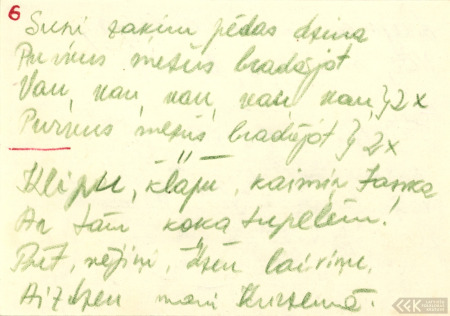 6
Suņi zaķim pēdas dzina
Purvus mežus bradājot
Vau, vau, vau, vau, vau, } 2x
Purvus mežus bradājot } 2x
— " —
Klipu, klapu, kaimiņ Janka
Ar tām koka tupelēm!
Bet, nejiņi, dzen laiviņu,
Aizdzen mani Kurzemē.